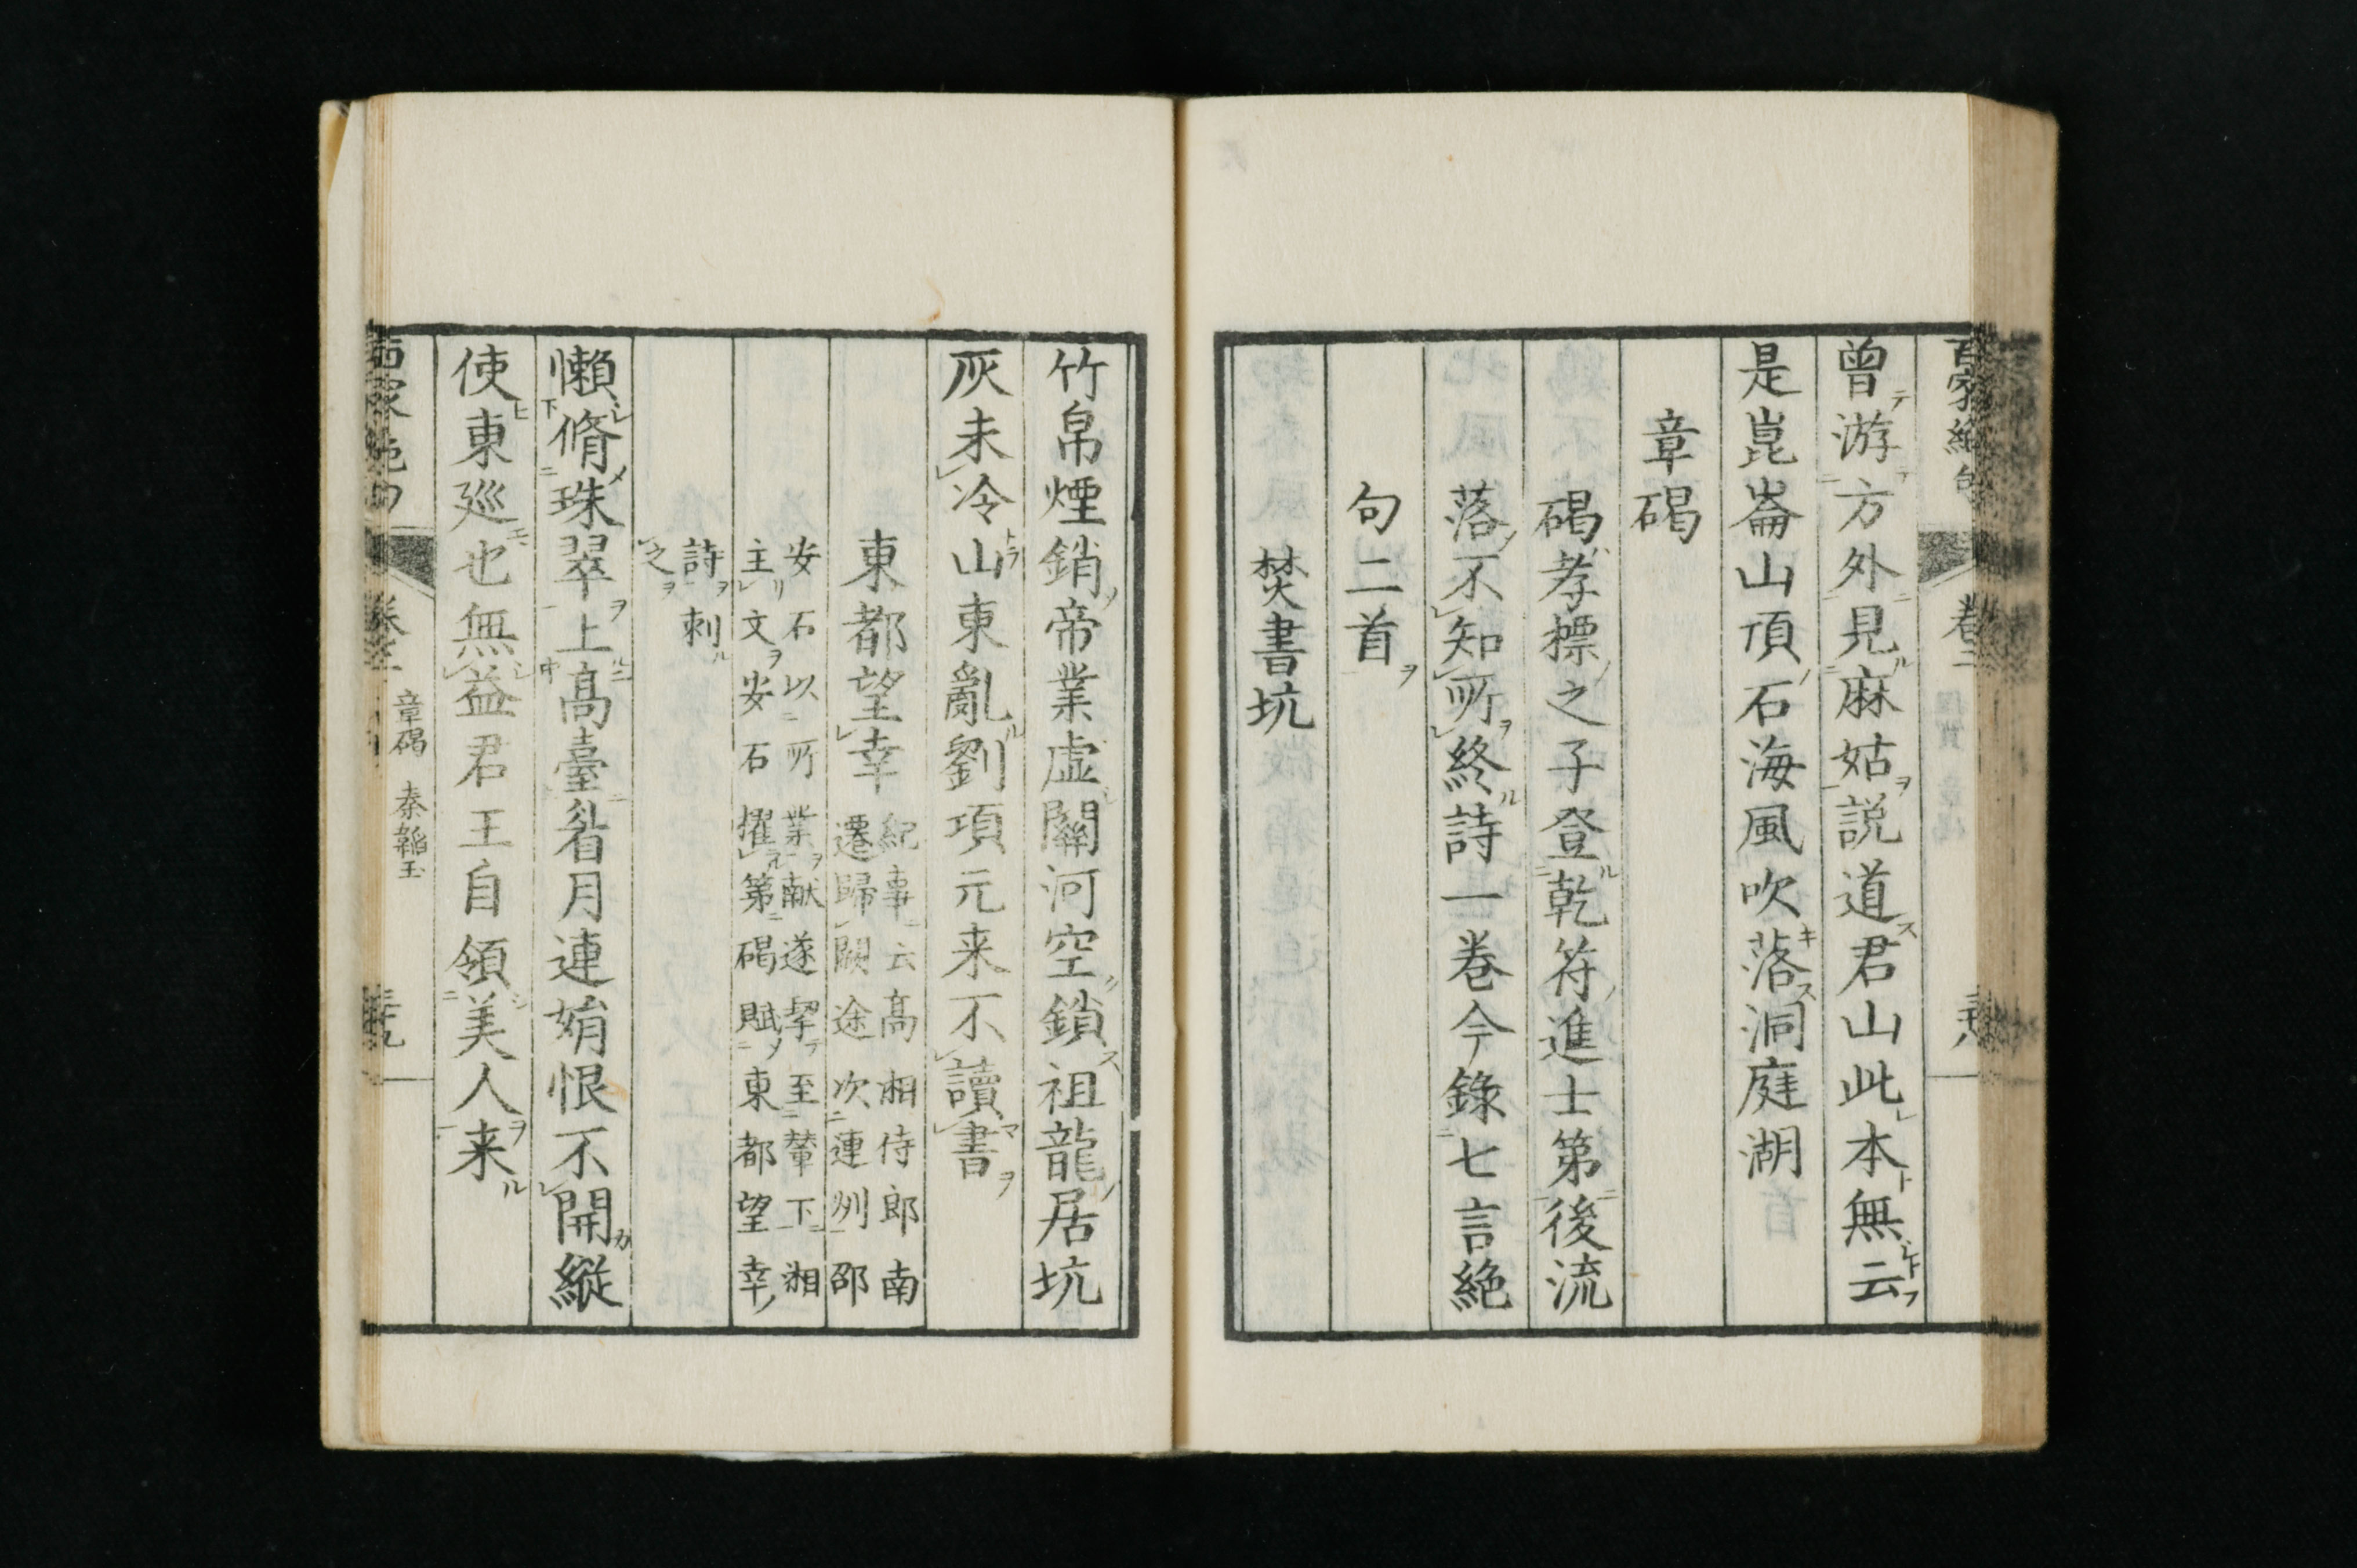 百家絶句 卷二
曾游方外見麻姑説道君山此本無云
是崑崙山頂石海風吹落洞庭湖
章碣
碣孝標之子登乾符進士第後流
落不知所終詩一卷今錄七言絶
句二首
焚書坑
竹帛煙銷帝業虚關河空鎖祖龍居坑
灰未冷山東亂劉項元来不讀書
東都望幸
紀事云高湘侍郎南
遷歸闕途次連州邵
安石以所業献遂挈至輦下湘
主文安石擢第碣賦東都望幸
詩刺
之
懶脩珠翠上高臺眉月連娟恨不開縱
使東巡也無益君王自領美人来
章碣 秦韜玉